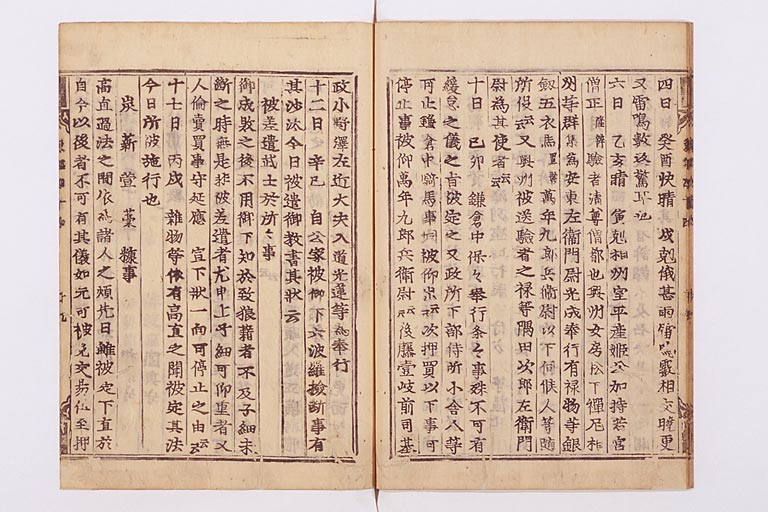 四日 癸酉快晴 戌剋俄甚雨雷鳴 嚴相交 暁更
又雷鳴数 驚耳也
六日 乙亥晴 寅剋相州室平産姫公加持若宮
僧正 験者清尊僧都也奥州女房 下禅尼相
州等群集為安東左衛門尉光成奉行有禄物等銀
劔五衣 馬置鞍 萬年九郎兵衛尉以下伺候人等随
所役云云又奥州被送験者之禄等隅田次郎左衛門
尉為其使者云云
十日 己卯 鎌倉中保々奉行条々事殊不可有
緩怠之儀之旨被定之又政所下部侍所小舎人等
可止鎌倉中騎馬事同被仰出云云次押買以下事可
停止事被仰萬年九郎兵衛尉云云後藤壹岐前司基
政小野澤左近大夫入道光蓮等為奉行
十二日 辛巳 自公家被仰下六波羅検断事有
其沙汰今日被遣御教書其状云
被差遣武士於所々事云云
御成敗之後不用御下知於致狼藉者不及子細未
断之時無是非被差遣者尤申上子細可仰重者又
人倫賣買事守延應 宣下状一向可停止之由云云
十七日 丙戌 雜物等 有高直之聞被定其法
今日所被施行也
炭薪萱藁糠事
高直過法之間依為諸人之煩先日雖被定下直於
自今以後者不可有其儀如元可被免交易 至押